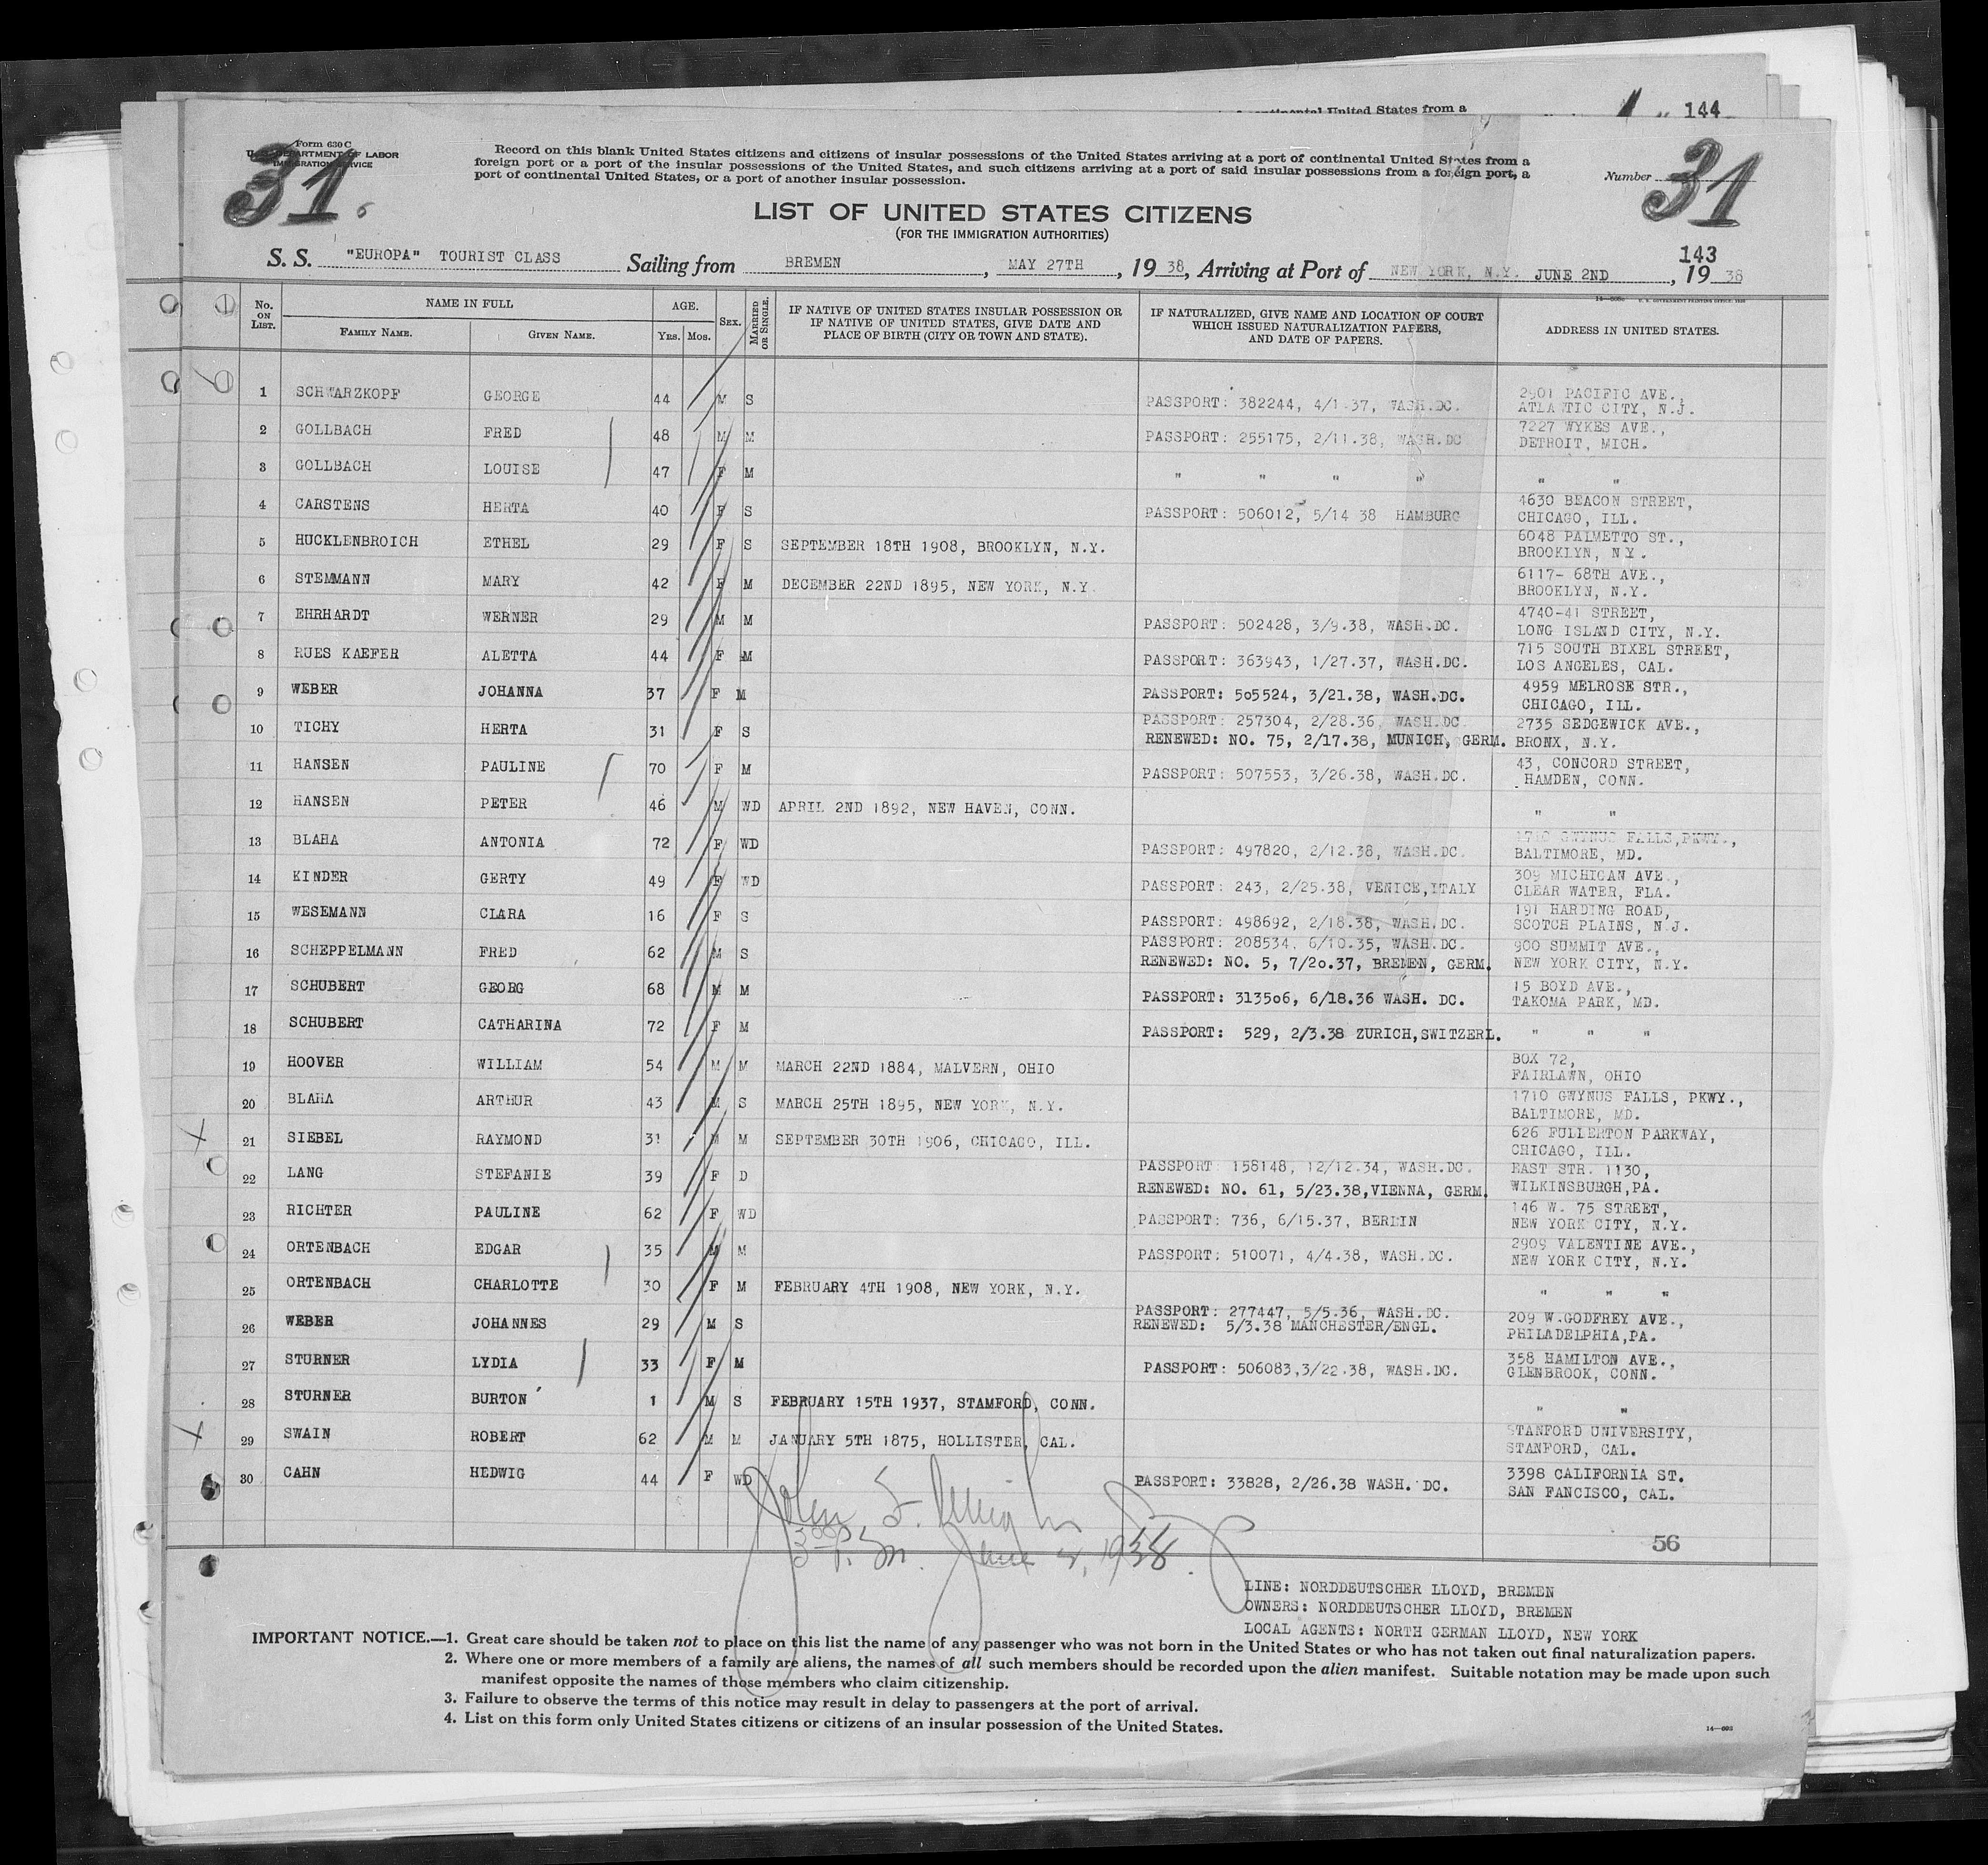 continental United States from a
144
Form 630 C
U. S. DEPARTMENT OF LABOR
IMMIGRATION SERVICE
31
Record on this blank United States citizens and citizens of insular possessions of the United States arriving at a port of continental United States from a
foreign port or a port of the insular possessions of the United States, and such citizens arriving at a port of said insular possessions from a foreign port, a
port of continental United States, or a port of another insular possession.
Number 31
LIST OF UNITED STATES CITIZENS
(FOR THE IMMIGRATION AUTHORITIES)
143
S. S. "EUROPA" TOURIST CLASS Sailing from BREMEN, MAY 27TH, 19 38, Arriving at Port of NEW YORK, N.Y. JUNE 2ND, 19 38
No. ON LIST. NAME IN FULL AGE. SEX. MARRIED OR SINGLE. IF NATIVE OF UNITED STATES INSULAR POSSESSION OR IF NATIVE OF UNITED STATES, GIVE DATE AND PLACE OF BIRTH (CITY OR TOWN AND STATE). IF NATURALIZED, GIVE NAME AND LOCATION OF COURT WHICH ISSUED NATURALIZATION PAPERS, AND DATE OF PAPERS. ADDRESS IN UNITED STATES.
FAMILY NAME. GIVEN NAME. YRS. MOS.
1 SCHWARZKOPF GEORGE 44 M S PASSPORT: 382244, 4/1.37, WASH.DC. 2901 PACIFIC AVE.,
ATLANTIC CITY, N.J.
2 GOLLBACH FRED 48 M M PASSPORT: 255175, 2/11.38, WASH.DC 7227 WYKES AVE.,
DETROIT, MICH.
3 GOLLBACH LOUISE 47 F M " " " " " "
4 CARSTENS HERTA 40 F S PASSPORT: 506012, 5/14 38 HAMBURG 4630 BEACON STREET,
CHICAGO, ILL.
5 HUCKLENBROICH ETHEL 29 F S SEPTEMBER 18TH 1908, BROOKLYN, N.Y. 6048 PALMETTO ST.,
BROOKLYN, NY.
6 STEMMANN MARY 42 F M DECEMBER 22ND 1895, NEW YORK, N.Y. 6117- 68TH AVE.,
BROOKLYN, N.Y.
7 EHRHARDT WERNER 29 M M PASSPORT: 502428, 3/9.38, WASH.DC. 4740-41 STREET,
LONG ISLAND CITY, N.Y.
8 RUES KAEFER ALETTA 44 F M PASSPORT: 363943, 1/27.37, WASH.DC. 715 SOUTH BIXEL STREET,
LOS ANGELES, CAL.
9 WEBER JOHANNA 37 F M PASSPORT: 505524, 3/21.38, WASH.DC. 4959 MELROSE STR.,
CHICAGO, ILL.
10 TICHY HERTA 31 F S PASSPORT: 257304, 2/28.36, WASH.DC. 2735 SEDGEWICK AVE.,
RENEWED: NO. 75, 2/17.38, MUNICH, GERM. BRONX, N.Y.
11 HANSEN PAULINE 70 F M PASSPORT: 507553, 3/26.38, WASH.DC. 43, CONCORD STREET,
HAMDEN, CONN.
12 HANSEN PETER 46 M WD APRIL 2ND 1892, NEW HAVEN, CONN. " "
13 BLAHA ANTONIA 72 F WD PASSPORT: 497820, 2/12.38, WASH.DC. 1710 GWYNUS FALLS,PKWY.,
BALTIMORE, MD.
14 KINDER GERTY 49 F WD PASSPORT: 243, 2/25.38, VENICE,ITALY 309 MICHIGAN AVE.,
CLEAR WATER, FLA.
15 WESEMANN CLARA 16 F S PASSPORT: 498692, 2/18.38, WASH.DC. 191 HARDING ROAD,
SCOTCH PLAINS, N.J.
16 SCHEPPELMANN FRED 62 M S PASSPORT: 208534, 6/10.35, WASH.DC. 900 SUMMIT AVE.,
RENEWED: NO. 5, 7/20.37, BREMEN, GERM. NEW YORK CITY, N.Y.
17 SCHUBERT GEORG 68 M M PASSPORT: 313506, 6/18.36 WASH. DC. 15 BOYD AVE.,
TAKOMA PARK, MD.
18 SCHUBERT CATHARINA 72 F M PASSPORT: 529, 2/3.38 ZURICH,SWITZERL. " " "
19 HOOVER WILLIAM 54 M M MARCH 22ND 1884, MALVERN, OHIO BOX 72,
FAIRLAWN, OHIO
20 BLAHA ARTHUR 43 M S MARCH 25TH 1895, NEW YORK, N.Y. 1710 GWYNUS FALLS, PKWY.,
BALTIMORE, MD.
21 SIEBEL RAYMOND 31 M M SEPTEMBER 30TH 1906, CHICAGO, ILL. 626 FULLERTON PARKWAY,
CHICAGO, ILL.
22 LANG STEFANIE 39 F D PASSPORT: 158148, 12/12.34, WASH.DC. EAST STR. 1130,
RENEWED: NO. 61, 5/23.38,VIENNA, GERM. WILKINSBURGH,PA.
23 RICHTER PAULINE 62 F WD PASSPORT: 736, 6/15.37, BERLIN 146 W. 75 STREET,
NEW YORK CITY, N.Y.
24 ORTENBACH EDGAR 35 M M PASSPORT: 510071, 4/4.38, WASH.DC. 2909 VALENTINE AVE.,
NEW YORK CITY, N.Y.
25 ORTENBACH CHARLOTTE 30 F M FEBRUARY 4TH 1908, NEW YORK, N.Y. " " "
26 WEBER JOHANNES 29 M S PASSPORT: 277447, 5/5.36, WASH.DC. 209 W.GODFREY AVE.,
RENEWED: 5/3.38 MANCHESTER/ENGL. PHILADELPHIA,PA.
27 STURNER LYDIA 33 F M PASSPORT: 506083,3/22.38, WASH.DC. 358 HAMILTON AVE.,
GLENBROOK, CONN.
28 STURNER BURTON 1 M S FEBRUARY 15TH 1937, STAMFORD, CONN. " "
29 SWAIN ROBERT 62 M M JANUARY 5TH 1875, HOLLISTER, CAL. STANFORD UNIVERSITY,
STANFORD, CAL.
30 CAHN HEDWIG 44 F WD PASSPORT: 33828, 2/26.38 WASH. DC. 3398 CALIFORNIA ST.
SAN FANCISCO, CAL.
John
3 00 P. M. June 2, 1938.
56
LINE: NORDDEUTSCHER LLOYD, BREMEN
OWNERS: NORDDEUTSCHER LLOYD, BREMEN
LOCAL AGENTS: NORTH GERMAN LLOYD, NEW YORK
IMPORTANT NOTICE.—1. Great care should be taken not to place on this list the name of any passenger who was not born in the United States or who has not taken out final naturalization papers.
2. Where one or more members of a family are aliens, the names of all such members should be recorded upon the alien manifest. Suitable notation may be made upon such
manifest opposite the names of those members who claim citizenship.
3. Failure to observe the terms of this notice may result in delay to passengers at the port of arrival.
4. List on this form only United States citizens or citizens of an insular possession of the United States.